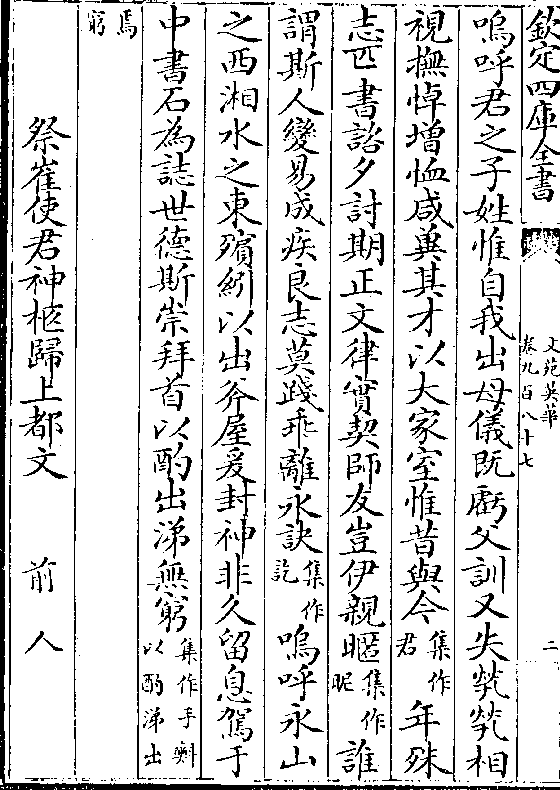 欽定四庫全書
文苑英華
卷九百八十七
二
嗚呼君之子姓惟自我出母儀既虧父訓又失煢煢相
視撫悼增恤咸冀其才以大家室惟昔與今集作君年殊
志匹書諮夕討期正文律實契師友豈伊親暱集作昵誰
謂斯人變易成疾良志莫踐乖離永訣集作訖嗚呼永山
之西湘水之東殯紖以出斧屋爰封神非久留息駕于
中書石為誌世德斯崇拜首以酌出涕無窮集作手㪺以酌涕出
焉窮
祭崔使君神柩歸上都文 前人